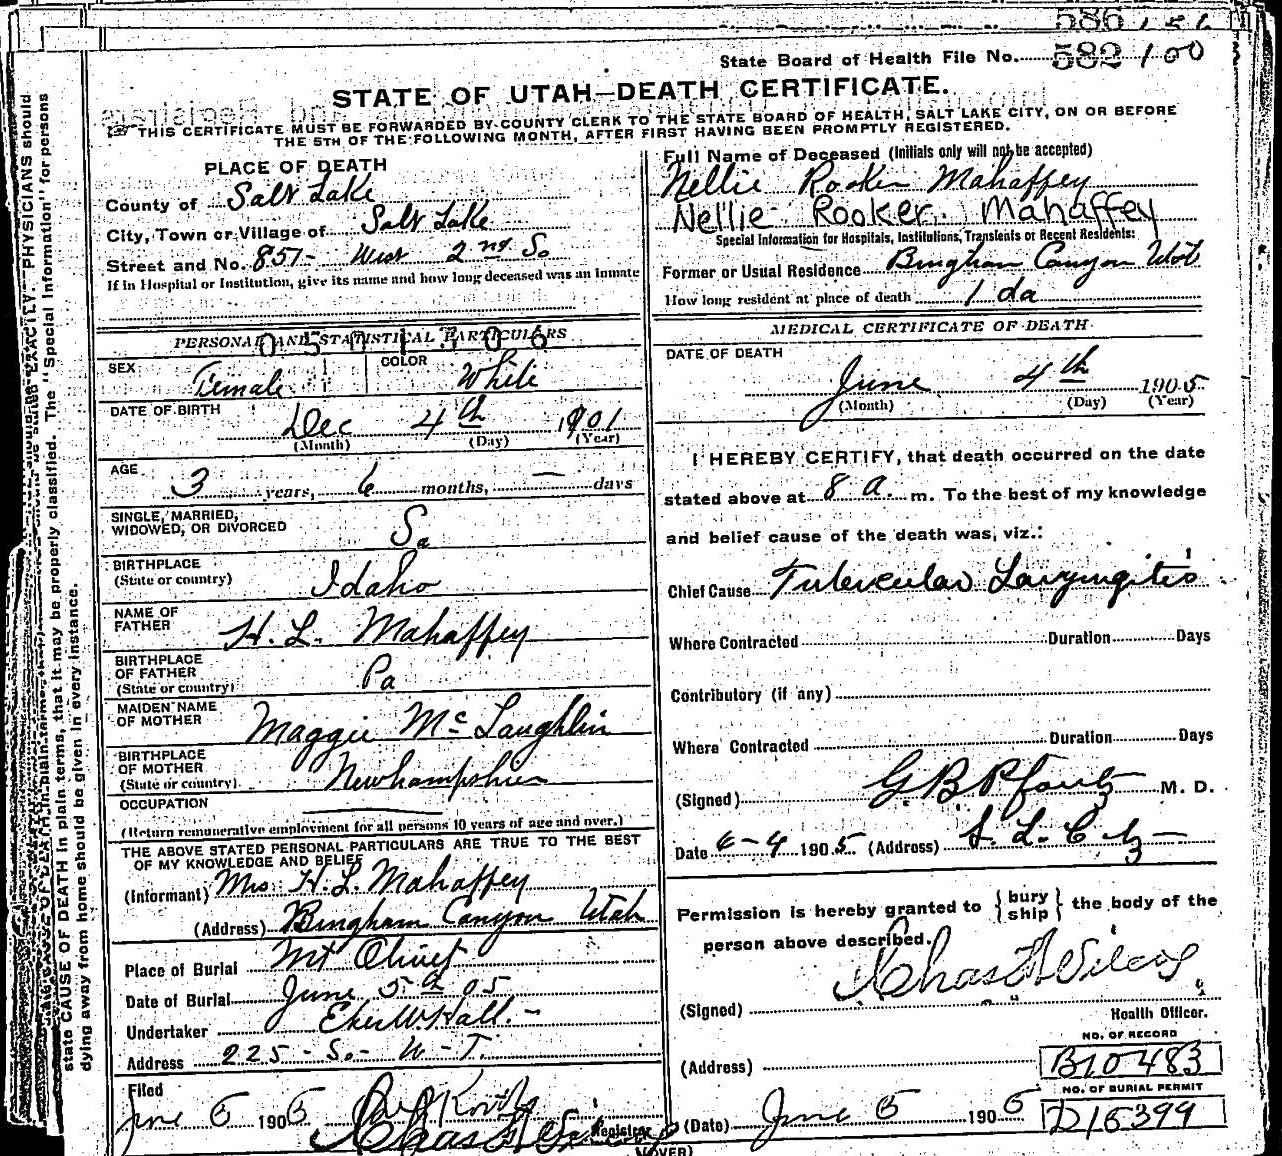 586
State Board of Health File No. 582 100
STATE OF UTAH—DEATH CERTIFICATE.
THIS CERTIFICATE MUST BE FORWARDED BY COUNTY CLERK TO THE STATE BOARD OF HEALTH, SALT LAKE CITY, ON OR BEFORE
THE 5TH OF THE FOLLOWING MONTH, AFTER FIRST HAVING BEEN PROMPTLY REGISTERED.
PLACE OF DEATH
County of Salt Lake
City, Town or Village of Salt Lake
Street and No. 857 - West 2nd So
If in Hospital or Institution, give its name and how long deceased was an inmate
PERSONAL AND STATISTICAL PARTICULARS
SEX Female COLOR White
DATE OF BIRTH Dec 4th 1901
(Month) (Day) (Year)
AGE 3 years, 6 months, — days
SINGLE, MARRIED,
WIDOWED, OR DIVORCED
BIRTHPLACE
(State or country) Idaho
NAME OF
FATHER H. L. Mahaffey
BIRTHPLACE
OF FATHER
(State or country) Pa
MAIDEN NAME
OF MOTHER Maggie McLaughlin
BIRTHPLACE
OF MOTHER
(State or country) Newhampshire
OCCUPATION
(Return remunerative employment for all persons 10 years of age and over.)
THE ABOVE STATED PERSONAL PARTICULARS ARE TRUE TO THE BEST
OF MY KNOWLEDGE AND BELIEF
(Informant) Mrs H. L. Mahaffey
(Address) Bingham Canyon Utah
Place of Burial Mt Olivet
Date of Burial June 5th 05
Undertaker
Address 225 - So - W - T.
Filed
June 5 1905
Registrar
(OVER)
Full Name of Deceased (Initials only will not be accepted)
Nellie Rooker Mahaffey
Nellie Rooker Mahaffey
Special Information for Hospitals, Institutions, Transients or Recent Residents:
Former or Usual Residence Bingham Canyon Utah
How long resident at place of death 1 da
MEDICAL CERTIFICATE OF DEATH
DATE OF DEATH
June 4th 1905
(Month) (Day) (Year)
I HEREBY CERTIFY, that death occurred on the date
stated above at 8 a. m. To the best of my knowledge
and belief cause of the death was, viz.:
Chief Cause Tubercular Laryngitis
Where Contracted Duration Days
Contributory (if any)
Where Contracted Duration Days
(Signed) G B Pfoutz M. D.
Date 6-4 1905 (Address) S. L. C.
Permission is hereby granted to { bury ship } the body of the
person above described.
(Signed) Chas F Wilcox
Health Officer.
NO. OF RECORD
(Address) B10483
NO. OF BURIAL PERMIT
(Date) June 5 1905 D16399
state CAUSE OF DEATH in plain terms, that it may be properly classified. The "Special Information" for persons
dying away from home should be given in every instance.
EXACTLY. PHYSICIANS should